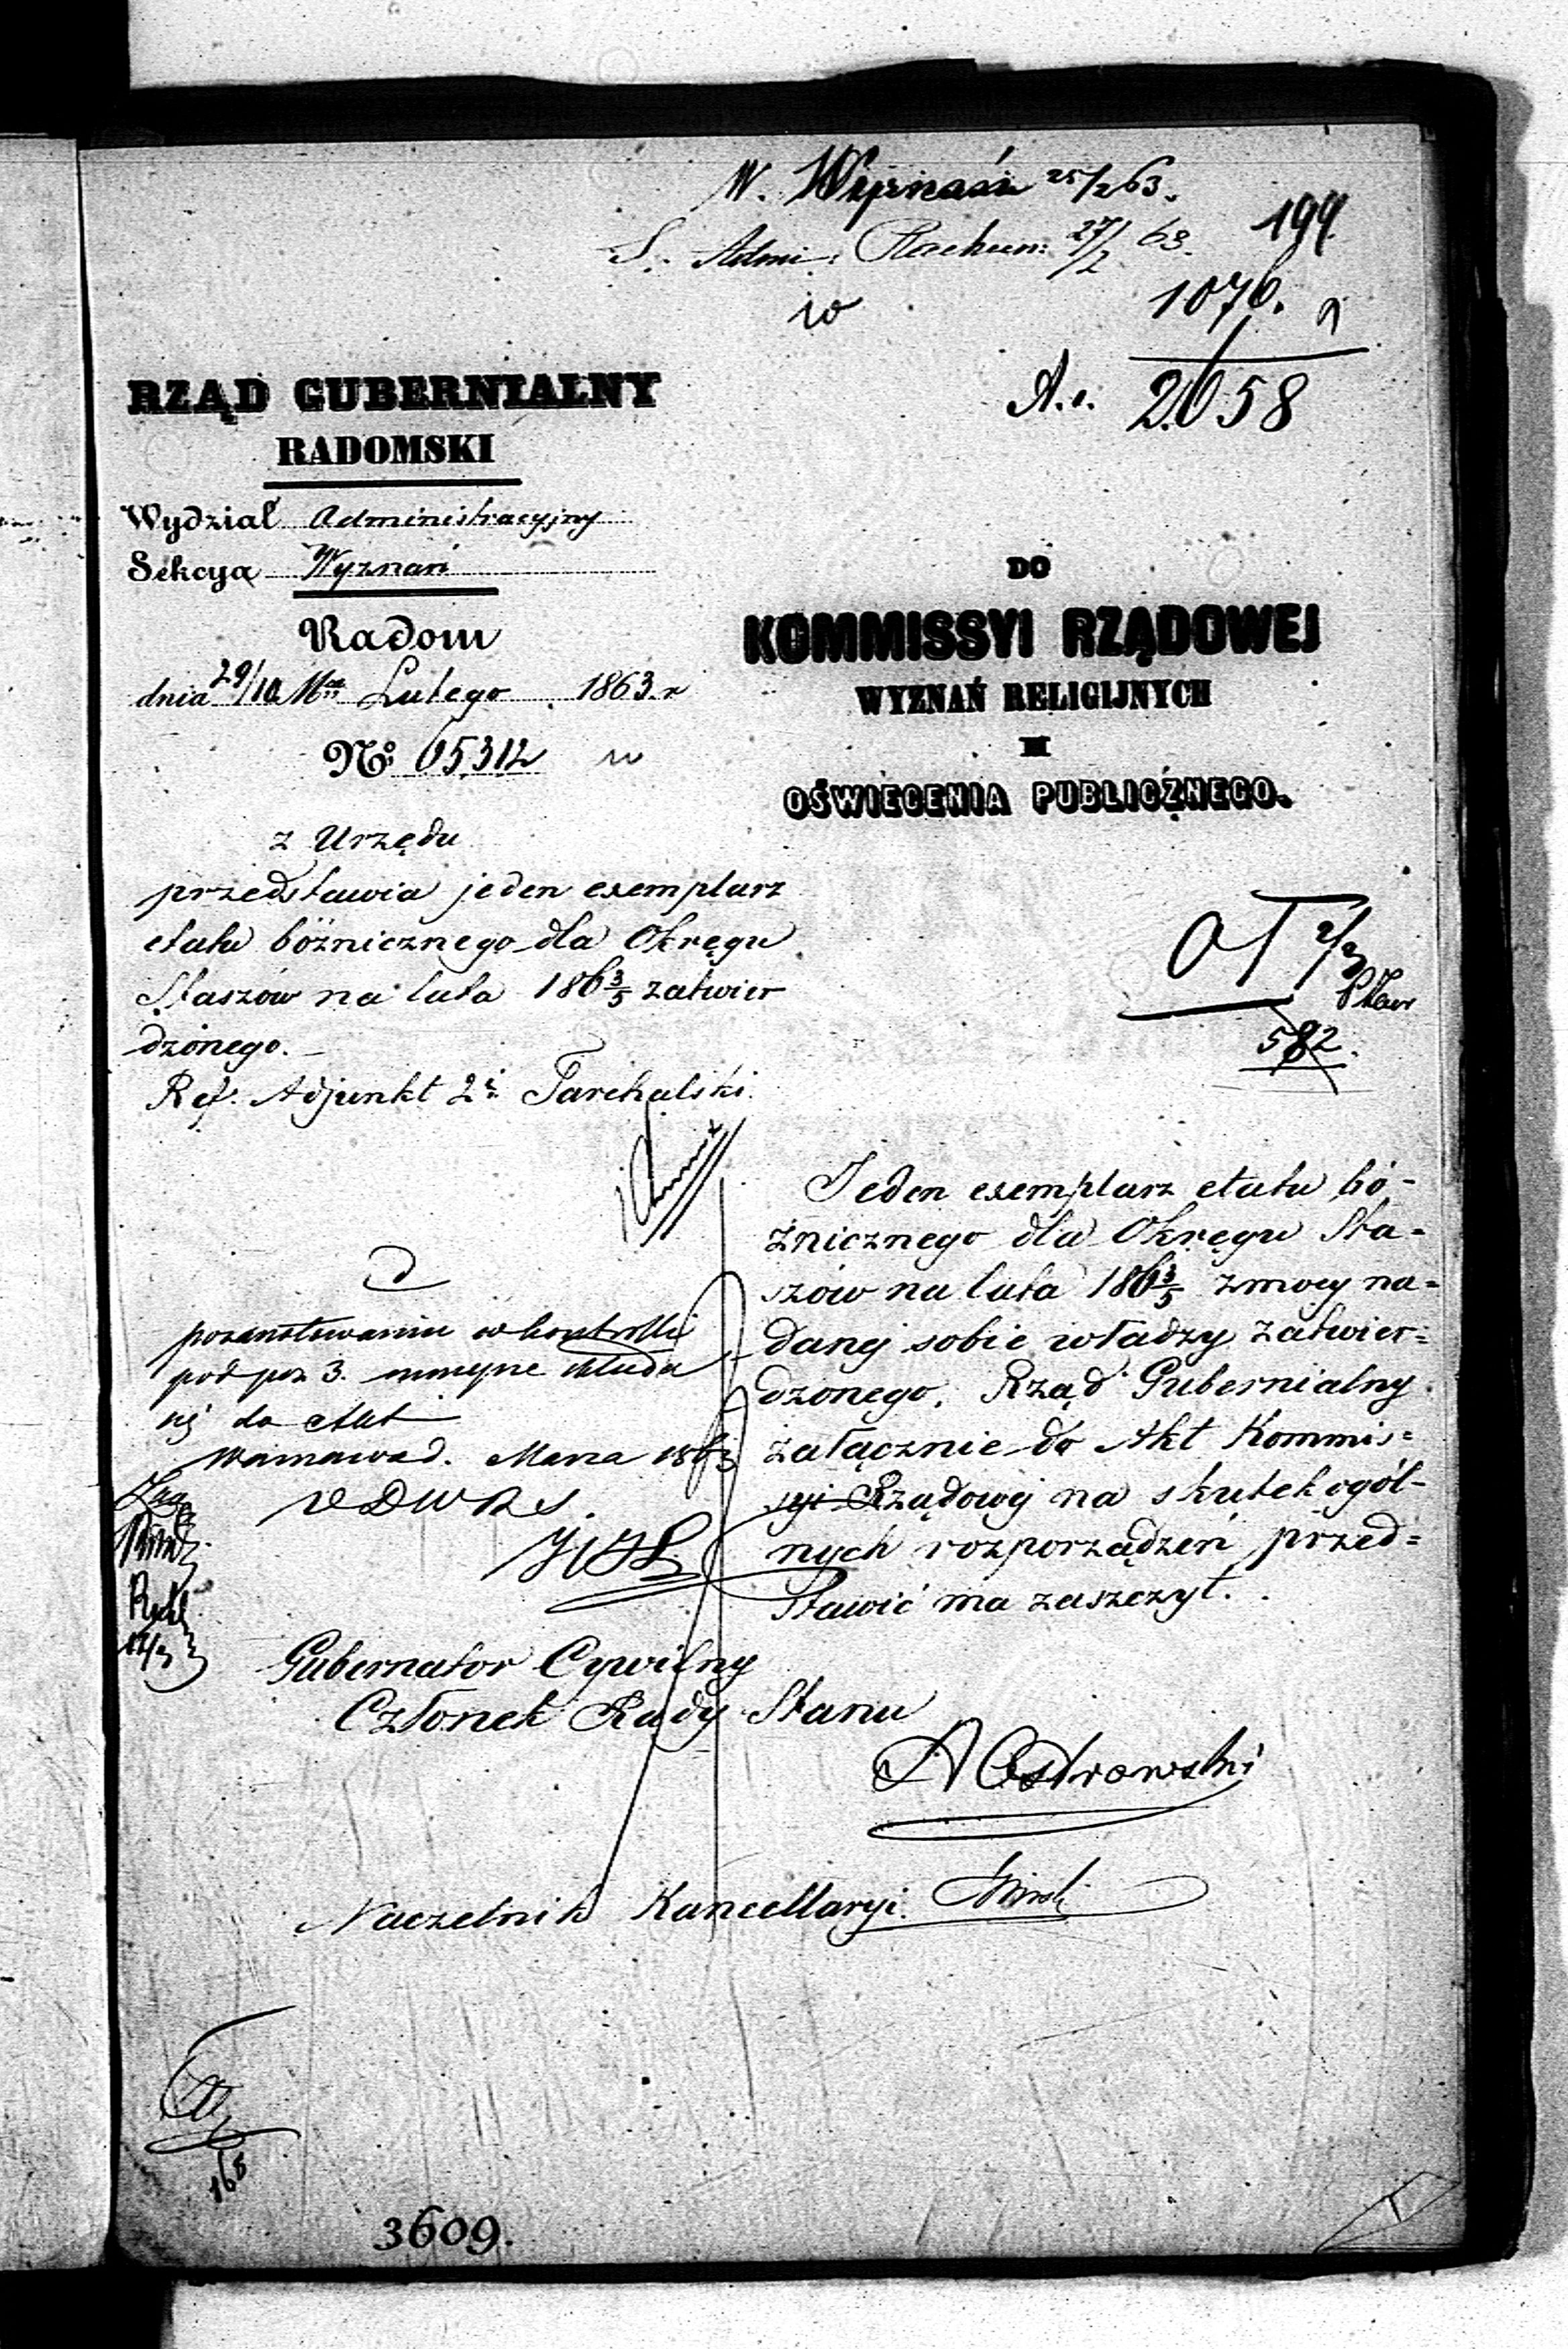 W. Wyznań 25/2 63.
S. Admi: Rachun: 27/2 63.
199
1076.
A. c. 2058
RZĄD GUBERNIALNY
RADOMSKI
Wydział Administracyjny
Sekcya Wyznań
Radom
dnia 29/10 Lutego 1863 r
No: 65312
DO
KOMMISSYI RZĄDOWEJ
WYZNAŃ RELIGIJNYCH
I
OŚWIECENIA PUBLICZNEGO.
z Urzędu
przedstawia jeden exemplarz
etatu bóżnicznego dla Okręgu
Staszów na lata 186 3/5 zatwier
dzonego.
Ref. Adjunkt 2i Tarchalski
2/3
582.
Jeden exemplarz etatu bó-
żnicznego dla Okręgu Sta=
szów na lata 186 3/5 zmocy na=
danej sobie władzy zatwier=
dzonego, Rząd Gubernialny
załącznie do Akt Kommis=
syi Rządowej na skutek ogól-
nych rozporządzeń przed=
stawić ma zaszczyt.
po zanotowaniu w kontrolli
pod poz 3. składa
się do Akt
Warszawa d. Marca 1863
Gubernator Cywilny
Członek Rady Stanu
A Ostrowski
Naczelnik Kancellaryi
168
3609.